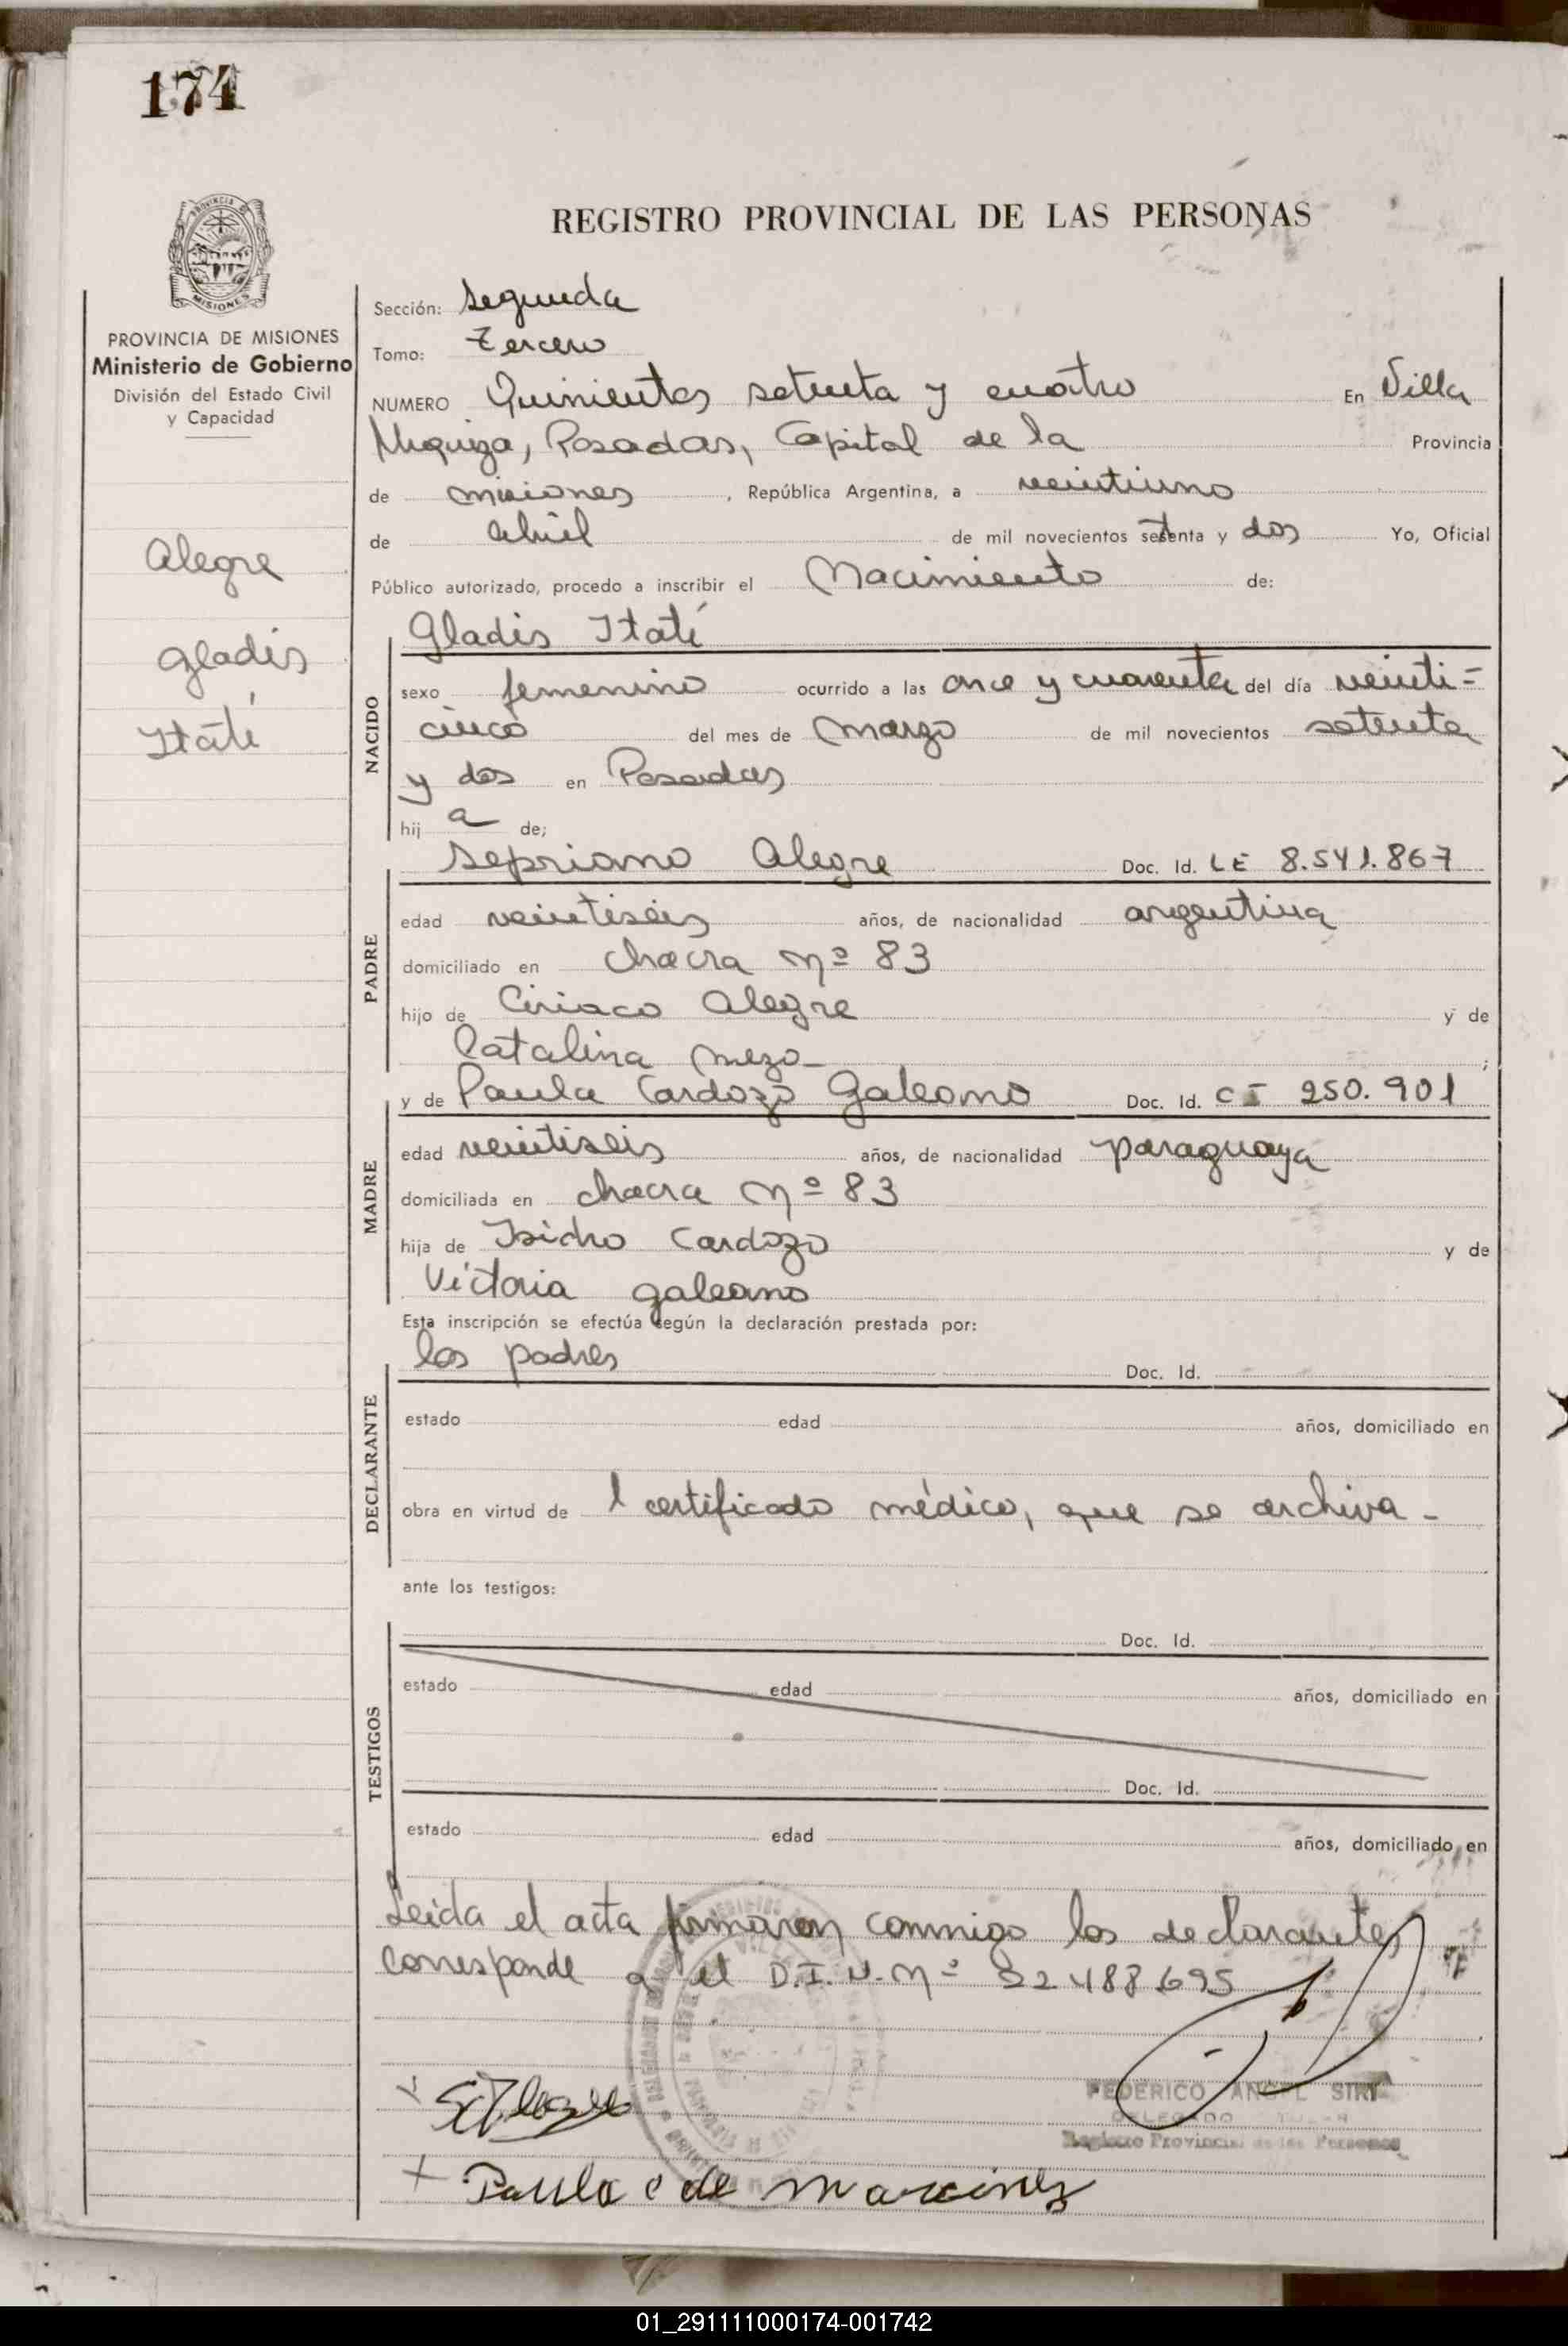 174
REGISTRO PROVINCIAL DE LAS PERSONAS
PROVINCIA DE MISIONES
Ministerio de Gobierno
División del Estado Civil
y Capacidad
Alegre
Gladis
Itatí
Sección: Segunda
Tomo: Tercero
NUMERO Quinientos setenta y cuatro En Villa
Urquiza, Posadas, Capital de la Provincia
de Misiones, República Argentina, a veintiuno
de abril de mil novecientos setenta y dos Yo, Oficial
Público autorizado, procedo a inscribir el Nacimiento de:
Gladis Itatí
NACIDO
sexo femenino ocurrido a las once y cuarenta del día veinti=
cinco del mes de Marzo de mil novecientos setenta
y dos en Posadas
hij a de;
Sepriano Alegre Doc. Id. LE 8.541.867
PADRE
edad veintiséis años, de nacionalidad argentina
domiciliado en chacra Nº 83
hijo de Ciriaco Alegre y de
Catalina Meza- ;
y de Paula Cardozo Galeano Doc. Id. CI 250.901
MADRE
edad veintiseis años, de nacionalidad paraguaya
domiciliada en chacra Nº 83
hija de Isidro Cardozo y de
Victoria galeano
Esta inscripción se efectúa según la declaración prestada por:
los padres Doc. Id.
DECLARANTE
estado edad años, domiciliado en
obra en virtud de l certificado médico, que se archiva -
ante los testigos:
Doc. Id.
TESTIGOS
estado edad años, domiciliado en
Doc. Id.
estado edad años, domiciliado en
Leida el acta firmaron conmigo los declarantes
corresponde a el D.I. N. Nº 22488695
FEDERICO ANGEL SIRI
DELEGADO
Registro Provincial de las Personas
Paula c de
01_291111000174-001742